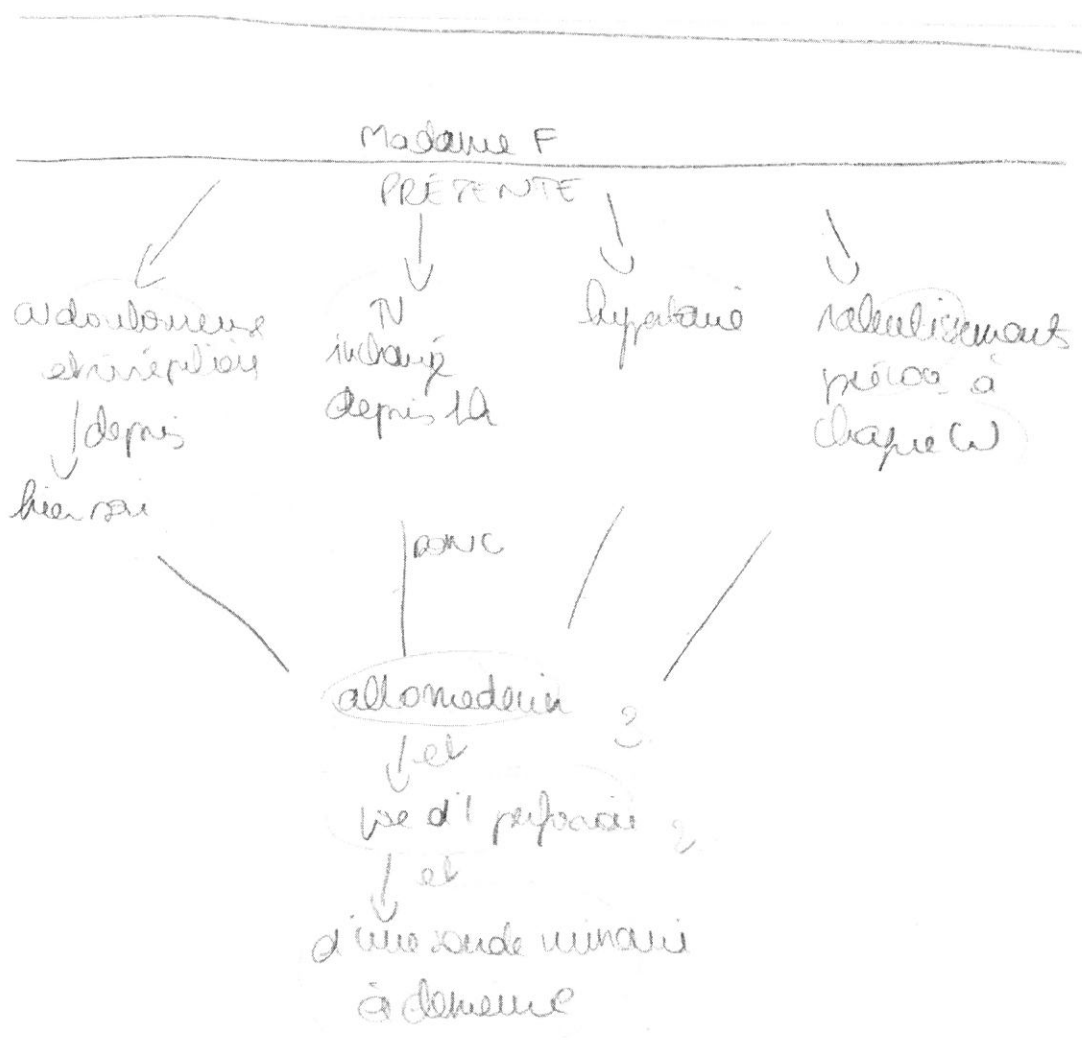 Madame F
PRÉSENTE
CU douloureuse
et irrégulière
depuis
hier soir
TV
inchangé
depuis 1h
hypertonie
ralentissements
précoc à
chaque CU
DONC
allo medecin ?
et
pse d'1 perfusion ?
et
d'une sonde urinaire
à demeure